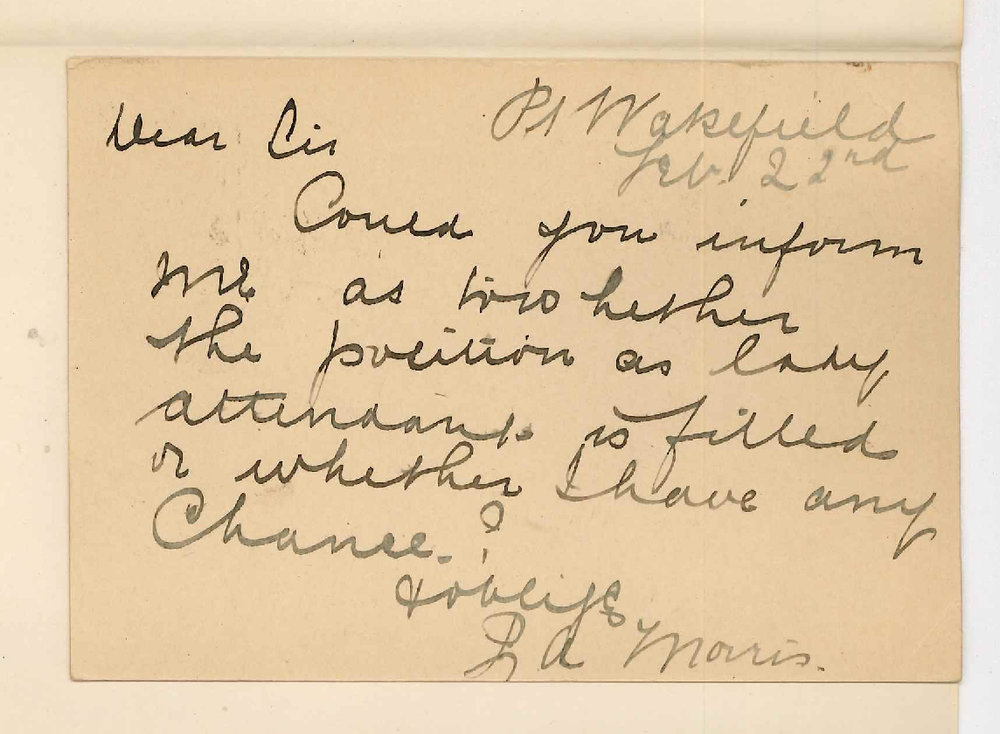 Pt Wakefield
Feb. 22nd
Dear Sir
Could you inform
me as to whether
the position as lady
attendant is filled
or whether I have any
Chance.?
& oblige
A Morris.